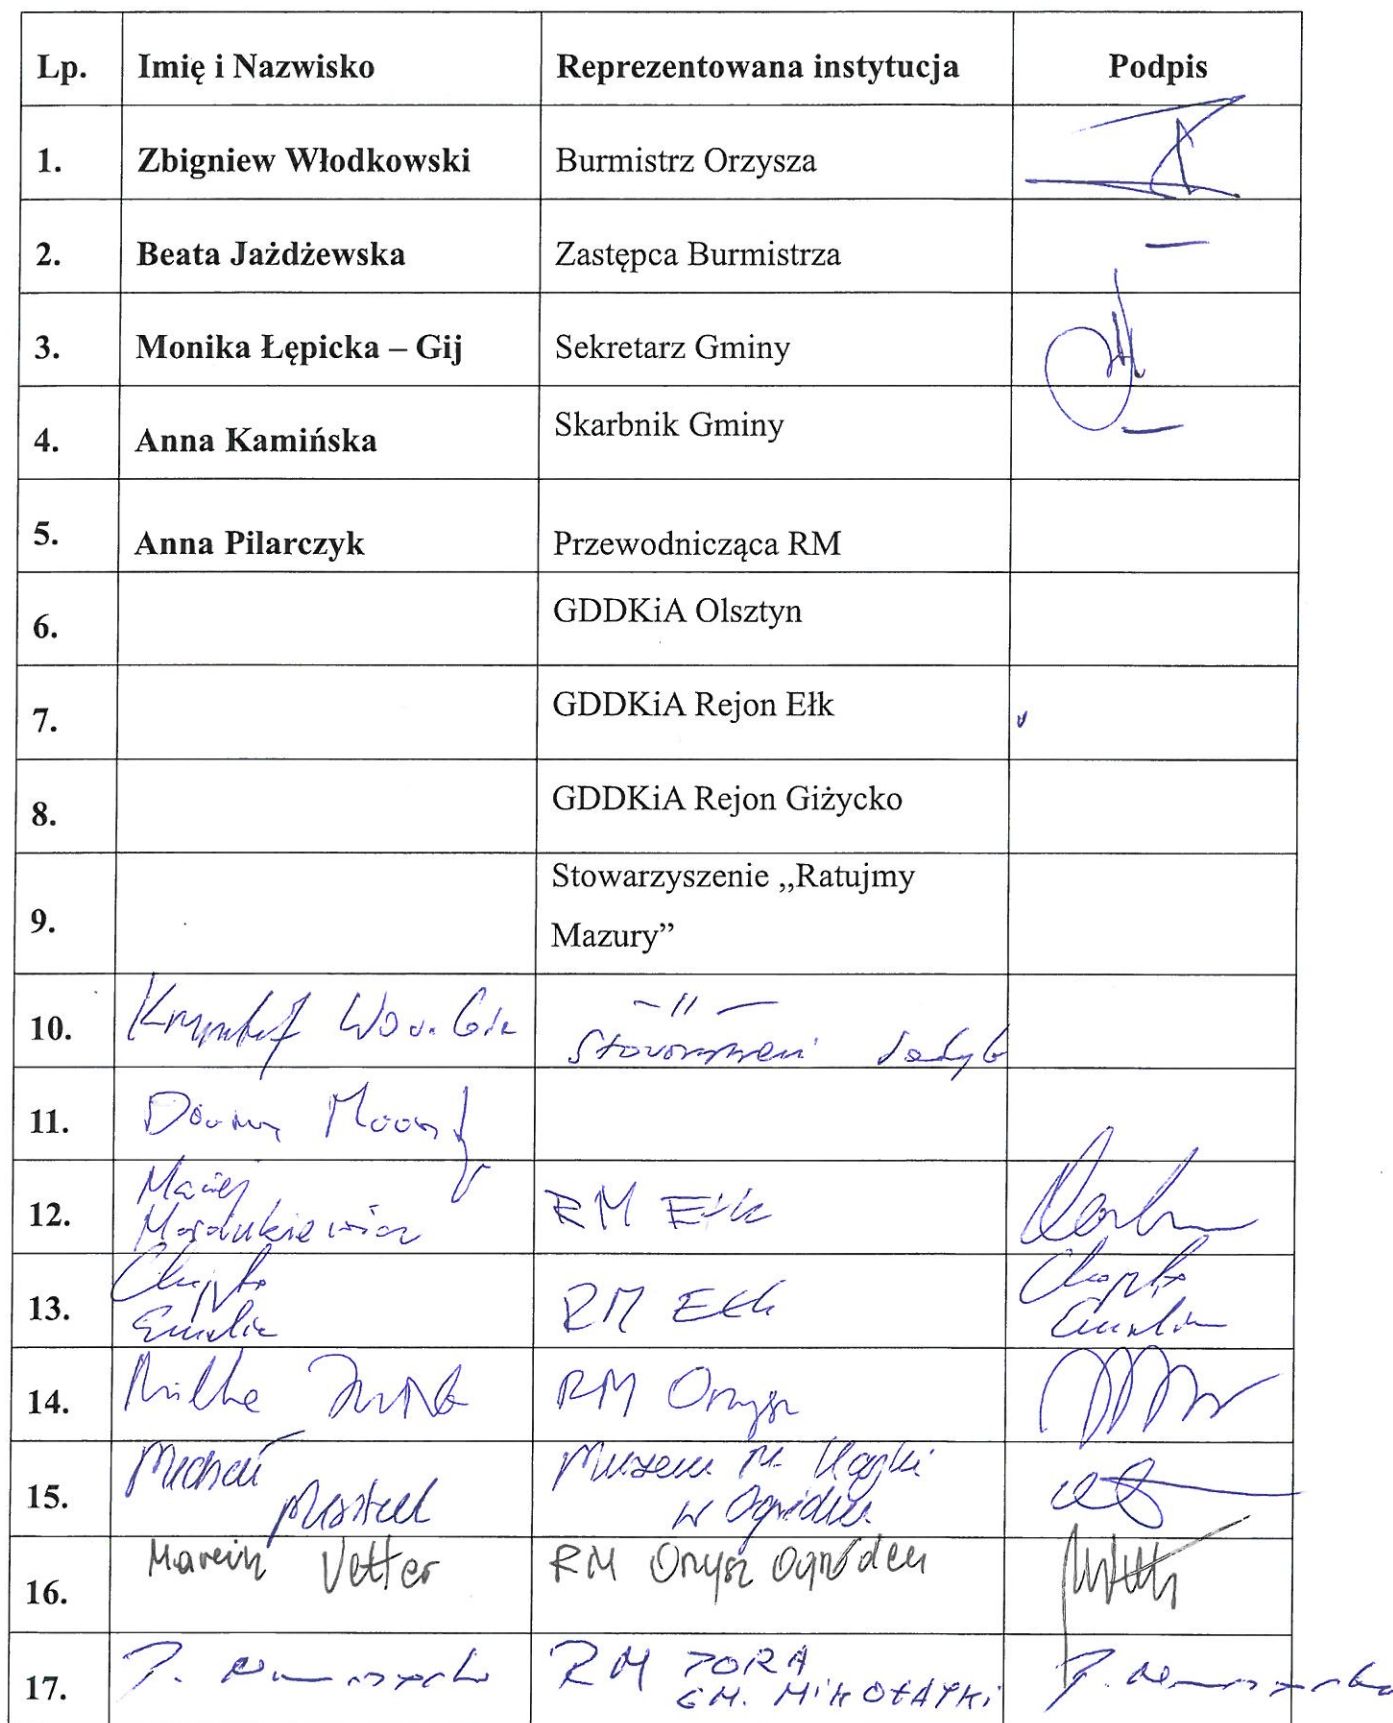 Lp. Imię i Nazwisko Reprezentowana instytucja Podpis
1. Zbigniew Włodkowski Burmistrz Orzysza
2. Beata Jażdżewska Zastępca Burmistrza —
3. Monika Łępicka – Gij Sekretarz Gminy
4. Anna Kamińska Skarbnik Gminy —
5. Anna Pilarczyk Przewodnicząca RM
6. GDDKiA Olsztyn
7. GDDKiA Rejon Ełk
8. GDDKiA Rejon Giżycko
9. Stowarzyszenie „Ratujmy
Mazury”
10. Krzysztof – 11 –
11.
12. Maciej RM Ełk
Mordukiewicz
13. RM Ełk
Emilia
14. RM Orzysz
15. Michał Muzeum M. Kajki
w Ogródku
16. Marcin Vetter RM Orzysz Ogródek
17. RM ZORA
GM. MIKOŁAJKI